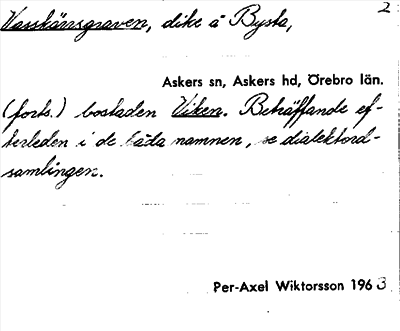 2
Vasskärrsgraven, dike å Bysta,
Askers sn, Askers hd, Örebro län.
(forts.) bostaden Viken. Beträffande ef-
terleden i de båda namnen, se dialektord-
samlingen.
Per-Axel Wiktorsson 1963